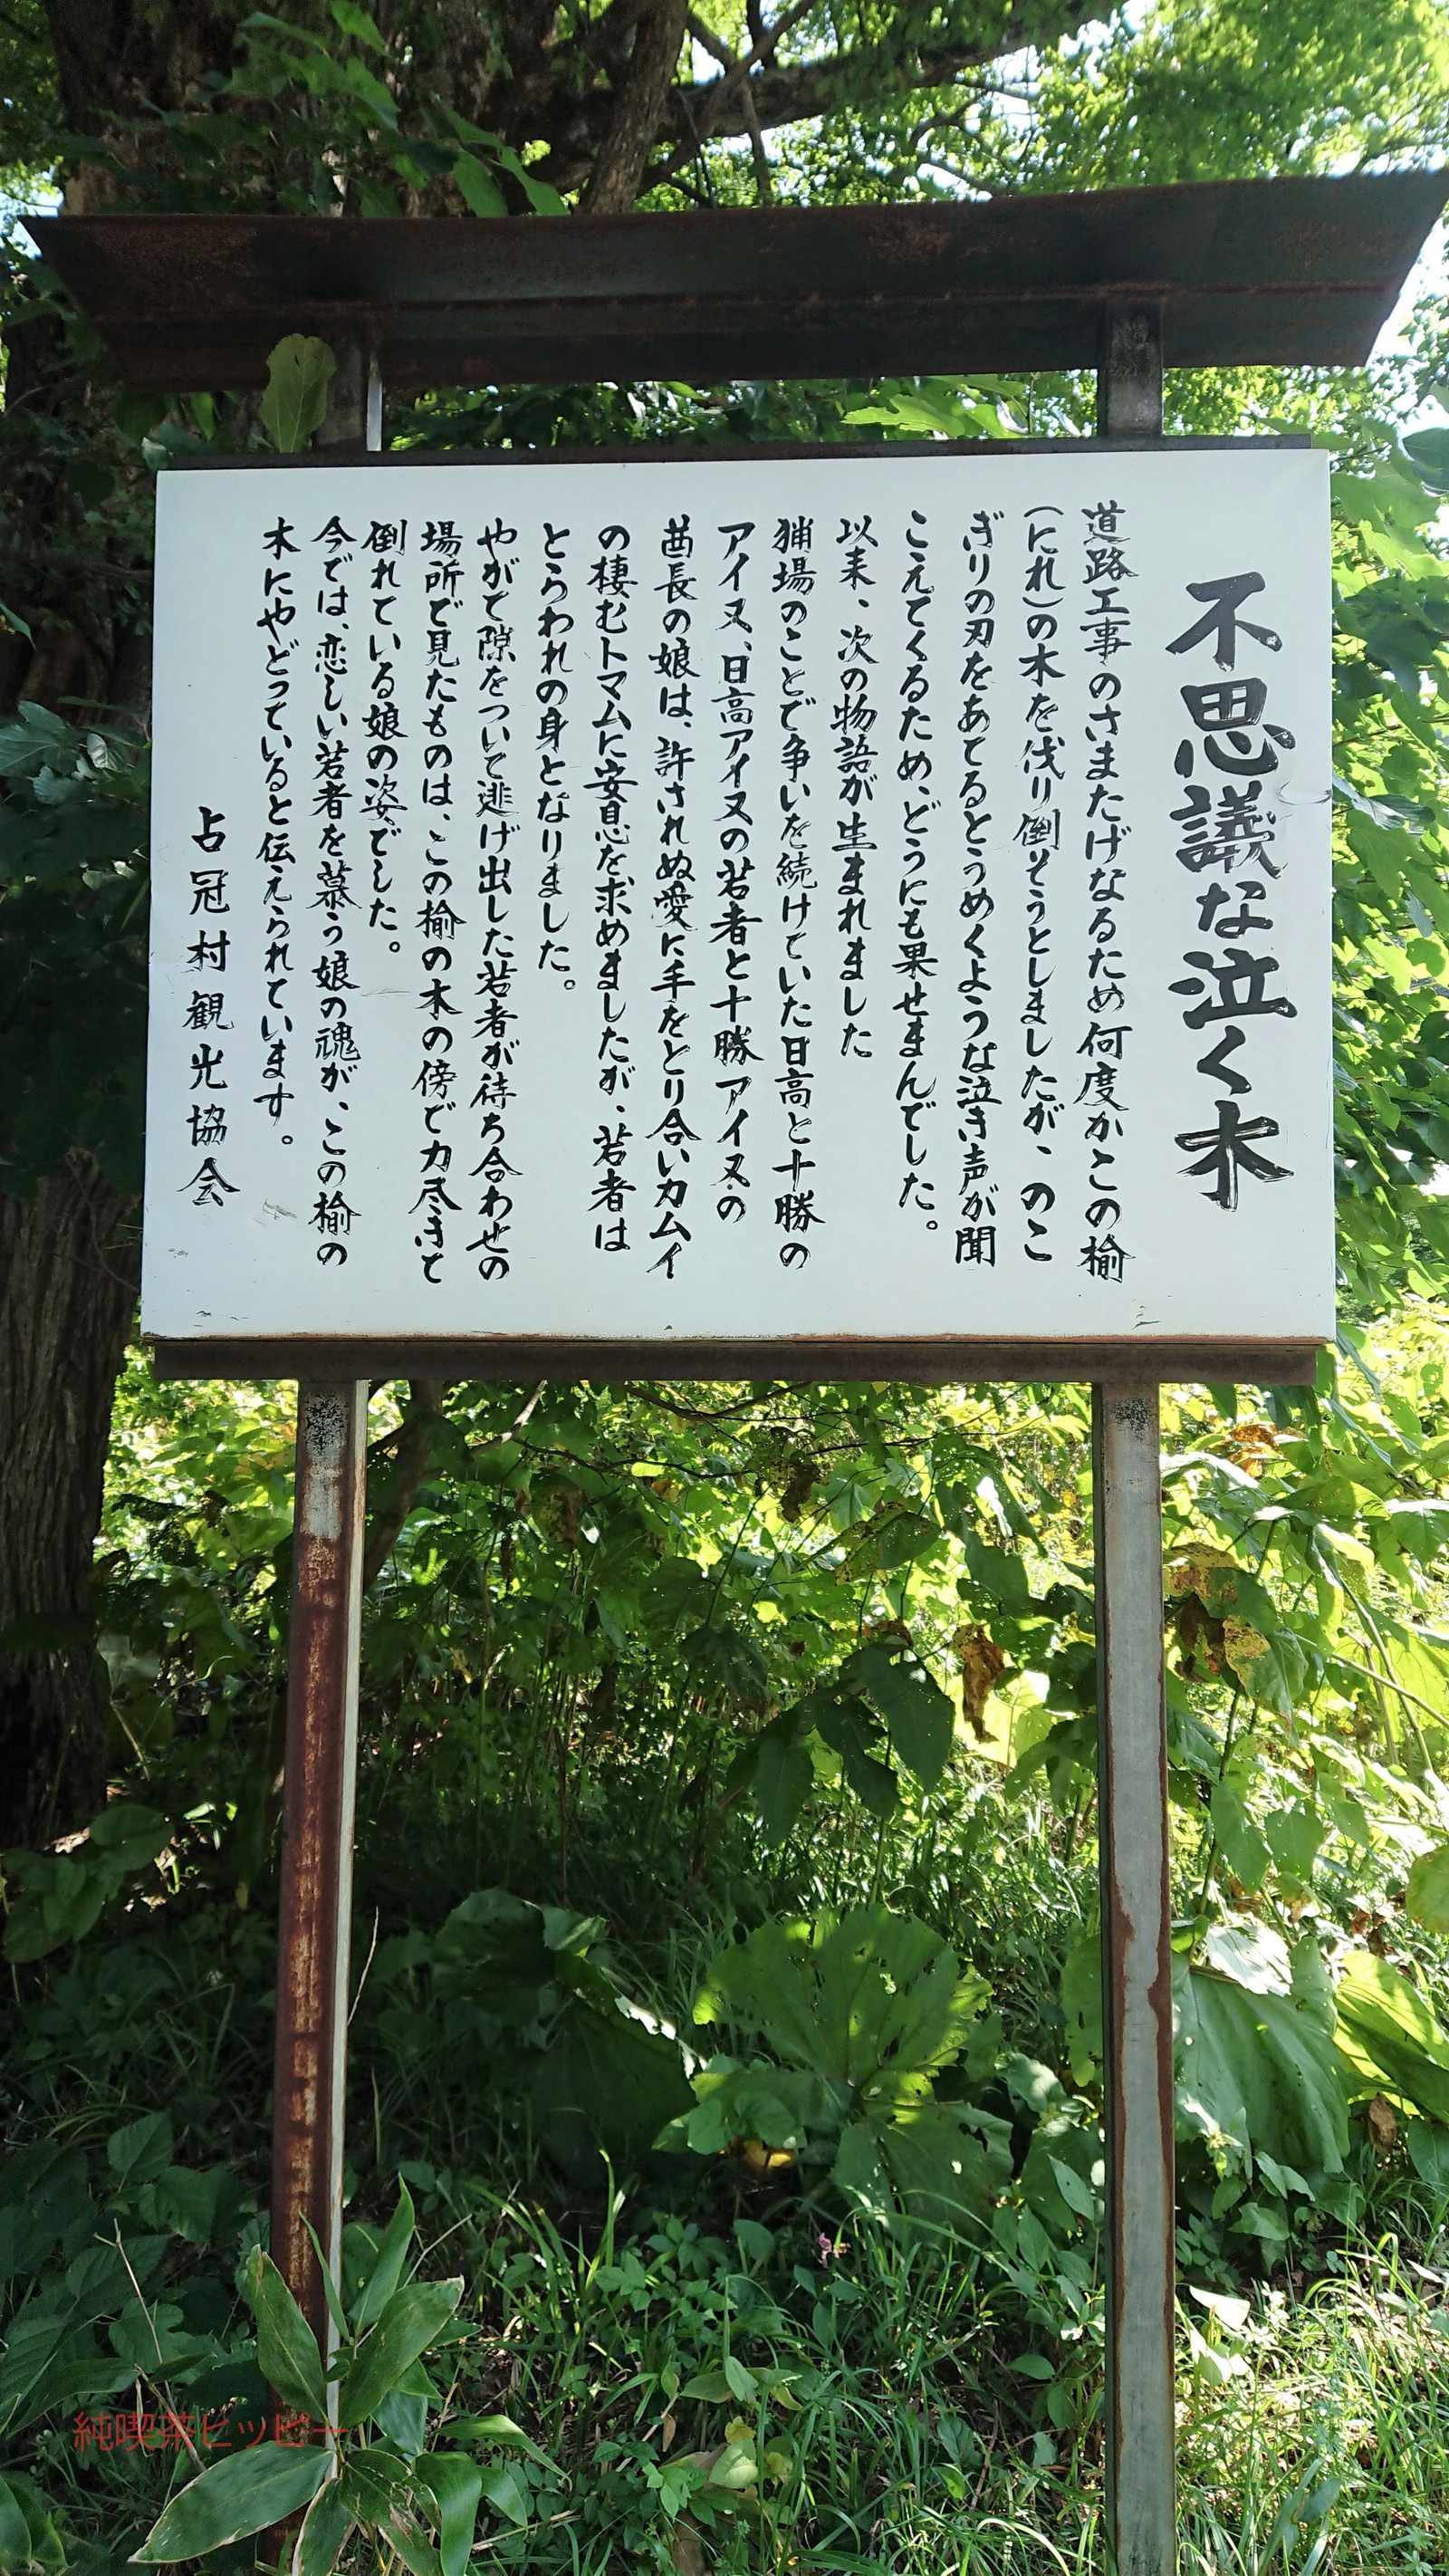 不思議な泣く木
道路工事のさまたげなるため何度かこの楡
(にれ)の木を伐り倒そうとしましたが、のこ
ぎりの刃をあてるとうめくような泣き声が聞
こえてくるため、どうにも果せませんでした。
以来、次の物語が生まれました
猟場のことで争いを続けていた日高と十勝の
アイヌ、日高アイヌの若者と十勝アイヌの
酋長の娘は、許されぬ愛に手をとり合いカムイ
の棲むトマムに安息を求めましたが、若者は
とらわれの身となりました。
やがて隙をついて逃げ出した若者が待ち合わせの
場所で見たものは、この楡の木の傍で力尽きて
倒れている娘の姿でした。
今では、恋しい若者を慕う娘の魂が、この楡の
木にやどっていると伝えられています。
占冠村観光協会
純喫茶ヒッピー